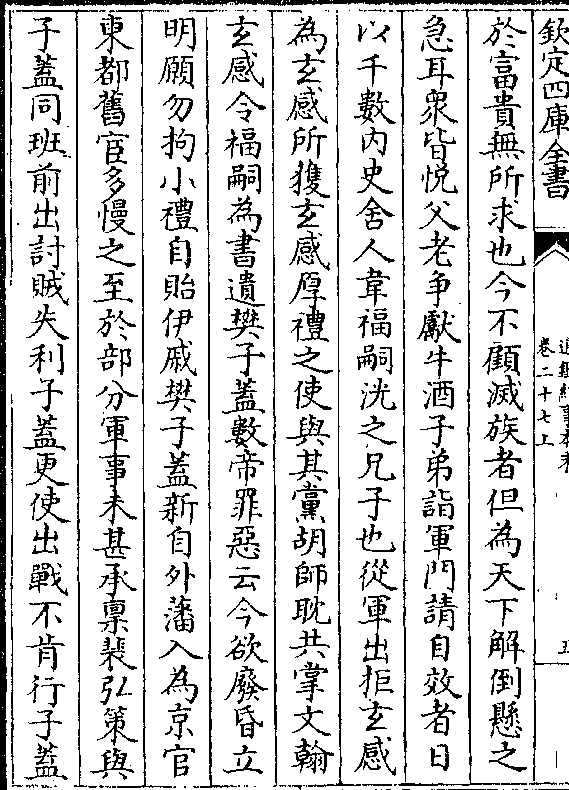 欽定四庫全書
通鑑紀事本末
卷二十七上
五
於富貴無所求也今不顧滅族者但為天下解倒懸之
急耳衆皆悅父老争獻牛酒子弟詣軍門請自效者日
以千數内史舍人韋福嗣洸之兄子也從軍出拒玄感
為玄感所獲玄感厚禮之使與其黨胡師耽共掌文翰
玄感令福嗣為書遺樊子蓋數帝罪惡云今欲廢昏立
明願勿拘小禮自貽伊戚樊子蓋新自外藩入為京官
東都舊官多慢之至於部分軍事未甚承禀裴弘策與
子蓋同班前出討賊失利子蓋更使出戰不肯行子蓋